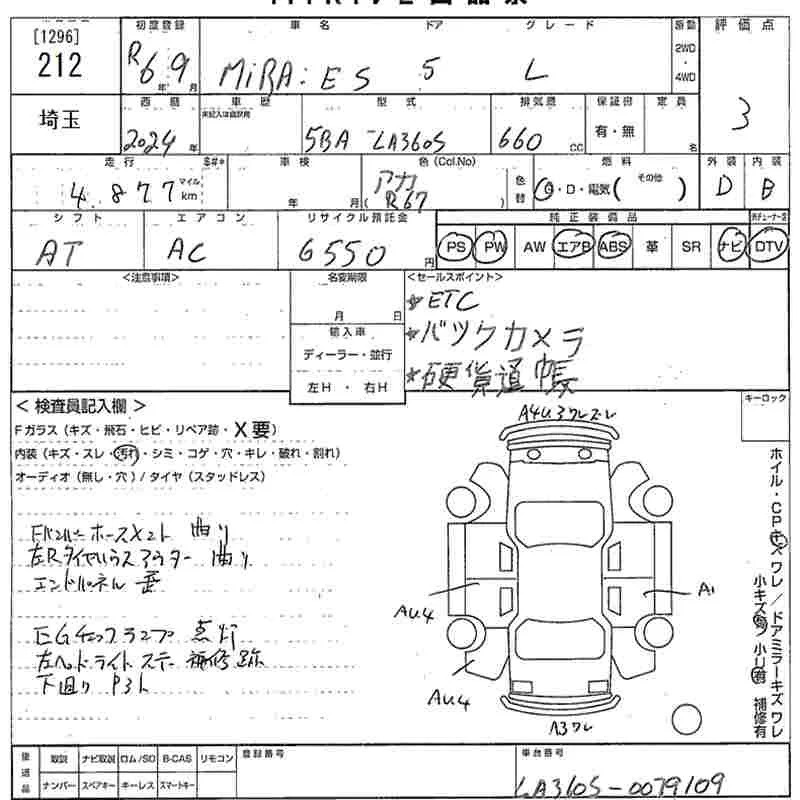 [1296]
212
初度登録
R6年9月
車名 ドア グレード
MiRA:ES 5 L
駆動
2WD
・
4WD
評価点
3
埼玉
西暦
2024年
車歴
未記入は自家用
型式
5BA-LA360S
排気量
660 CC
保証書
有・無
定員
名
走行 $#*
4,877 マイル km
車検
年 月
色(Col.No)
アカ
(R67)
色替
燃料
G・D・電気( その他 )
外装
D
内装
B
シフト
AT
エアコン
AC
リサイクル預託金
6550円
純正装備品
PS PW AW エアB ABS 革 SR ナビ DTV
<注意事項>
名変期限
月 日
輸入車
ディーラー・並行
左H・右H
<セールスポイント>
★ETC
★バックカメラ
★硬貨通帳
キーロック
<検査員記入欄>
Fガラス(キズ・飛石・ヒビ・リペア跡・X要)
内装(キズ・スレ・汚れ・シミ・コゲ・穴・キレ・破れ・割れ)
オーディオ(無し・穴)/タイヤ(スタッドレス)
Fバンパーホースメント 曲り
左Rタイヤハウスアウター 曲り
エンドパネル 歪
EGチェックランプ 点灯
左ヘッドライトステー 補修跡
下廻り
A4U3ワレズレ
AU4
A1
AU4
A3ワレ
ホイル・CPキズワレ/ドアミラーキズワレ
補修有
後送品
取説 ナビ取説 ロム/SD B-CAS リモコン
ナンバー スペアキー キーレス スマートキー
登録番号
車台番号
LA360S-0079109